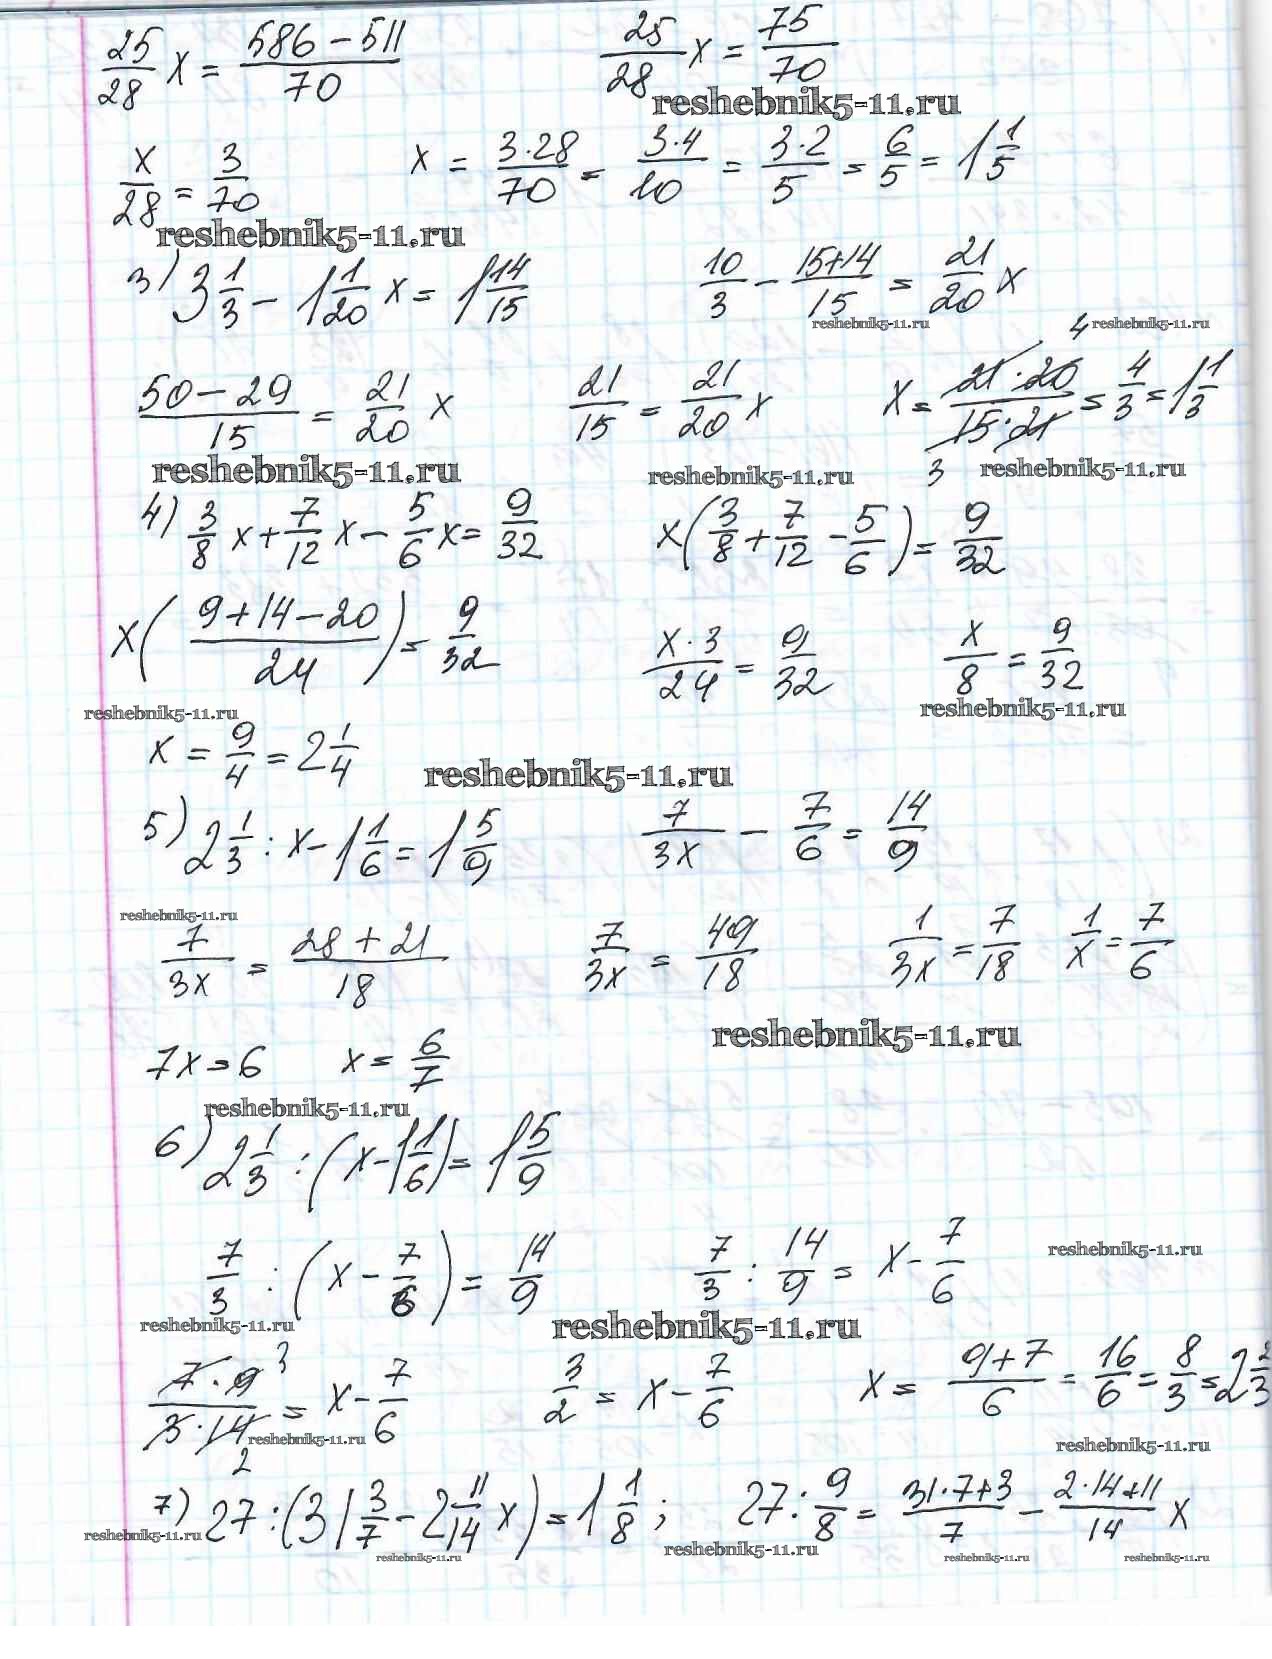 25/28 x = (586 − 511)/70    25/28 x = 75/70
reshebnik5-11.ru
x/28 = 3/70    x = 3·28/70 = 3·4/10 = 3·2/5 = 6/5 = 1 1/5
reshebnik5-11.ru
3) 3 1/3 − 1 1/20 x = 1 14/15    10/3 − (15+14)/15 = 21/20 x
reshebnik5-11.ru reshebnik5-11.ru
(50 − 29)/15 = 21/20 x    21/15 = 21/20 x    x = 21·20/15·21 = 4/3 = 1 1/3
4
3
reshebnik5-11.ru reshebnik5-11.ru reshebnik5-11.ru
4) 3/8 x + 7/12 x − 5/6 x = 9/32    x(3/8 + 7/12 − 5/6) = 9/32
x((9+14−20)/24) = 9/32    x·3/24 = 9/32    x/8 = 9/32
reshebnik5-11.ru reshebnik5-11.ru
x = 9/4 = 2 1/4
reshebnik5-11.ru
5) 2 1/3 : x − 1 1/6 = 1 5/9    7/3x − 7/6 = 14/9
reshebnik5-11.ru
7/3x = (28 + 21)/18    7/3x = 49/18    1/3x = 7/18    1/x = 7/6
reshebnik5-11.ru
7x = 6    x = 6/7
reshebnik5-11.ru
6) 2 1/3 : (x − 1 1/6) = 1 5/9
7/3 : (x − 7/6) = 14/9    7/3 : 14/9 = x − 7/6
reshebnik5-11.ru
reshebnik5-11.ru reshebnik5-11.ru
7·9/3·14 = x − 7/6    3/2 = x − 7/6    x = (9+7)/6 = 16/6 = 8/3 = 2 2/3
3
2
reshebnik5-11.ru reshebnik5-11.ru
7) 27 : (31 3/7 − 2 11/14 x) = 1 1/8 ;    27 : 9/8 = (31·7+3)/7 − (2·14+11)/14 x
reshebnik5-11.ru reshebnik5-11.ru reshebnik5-11.ru reshebnik5-11.ru reshebnik5-11.ru